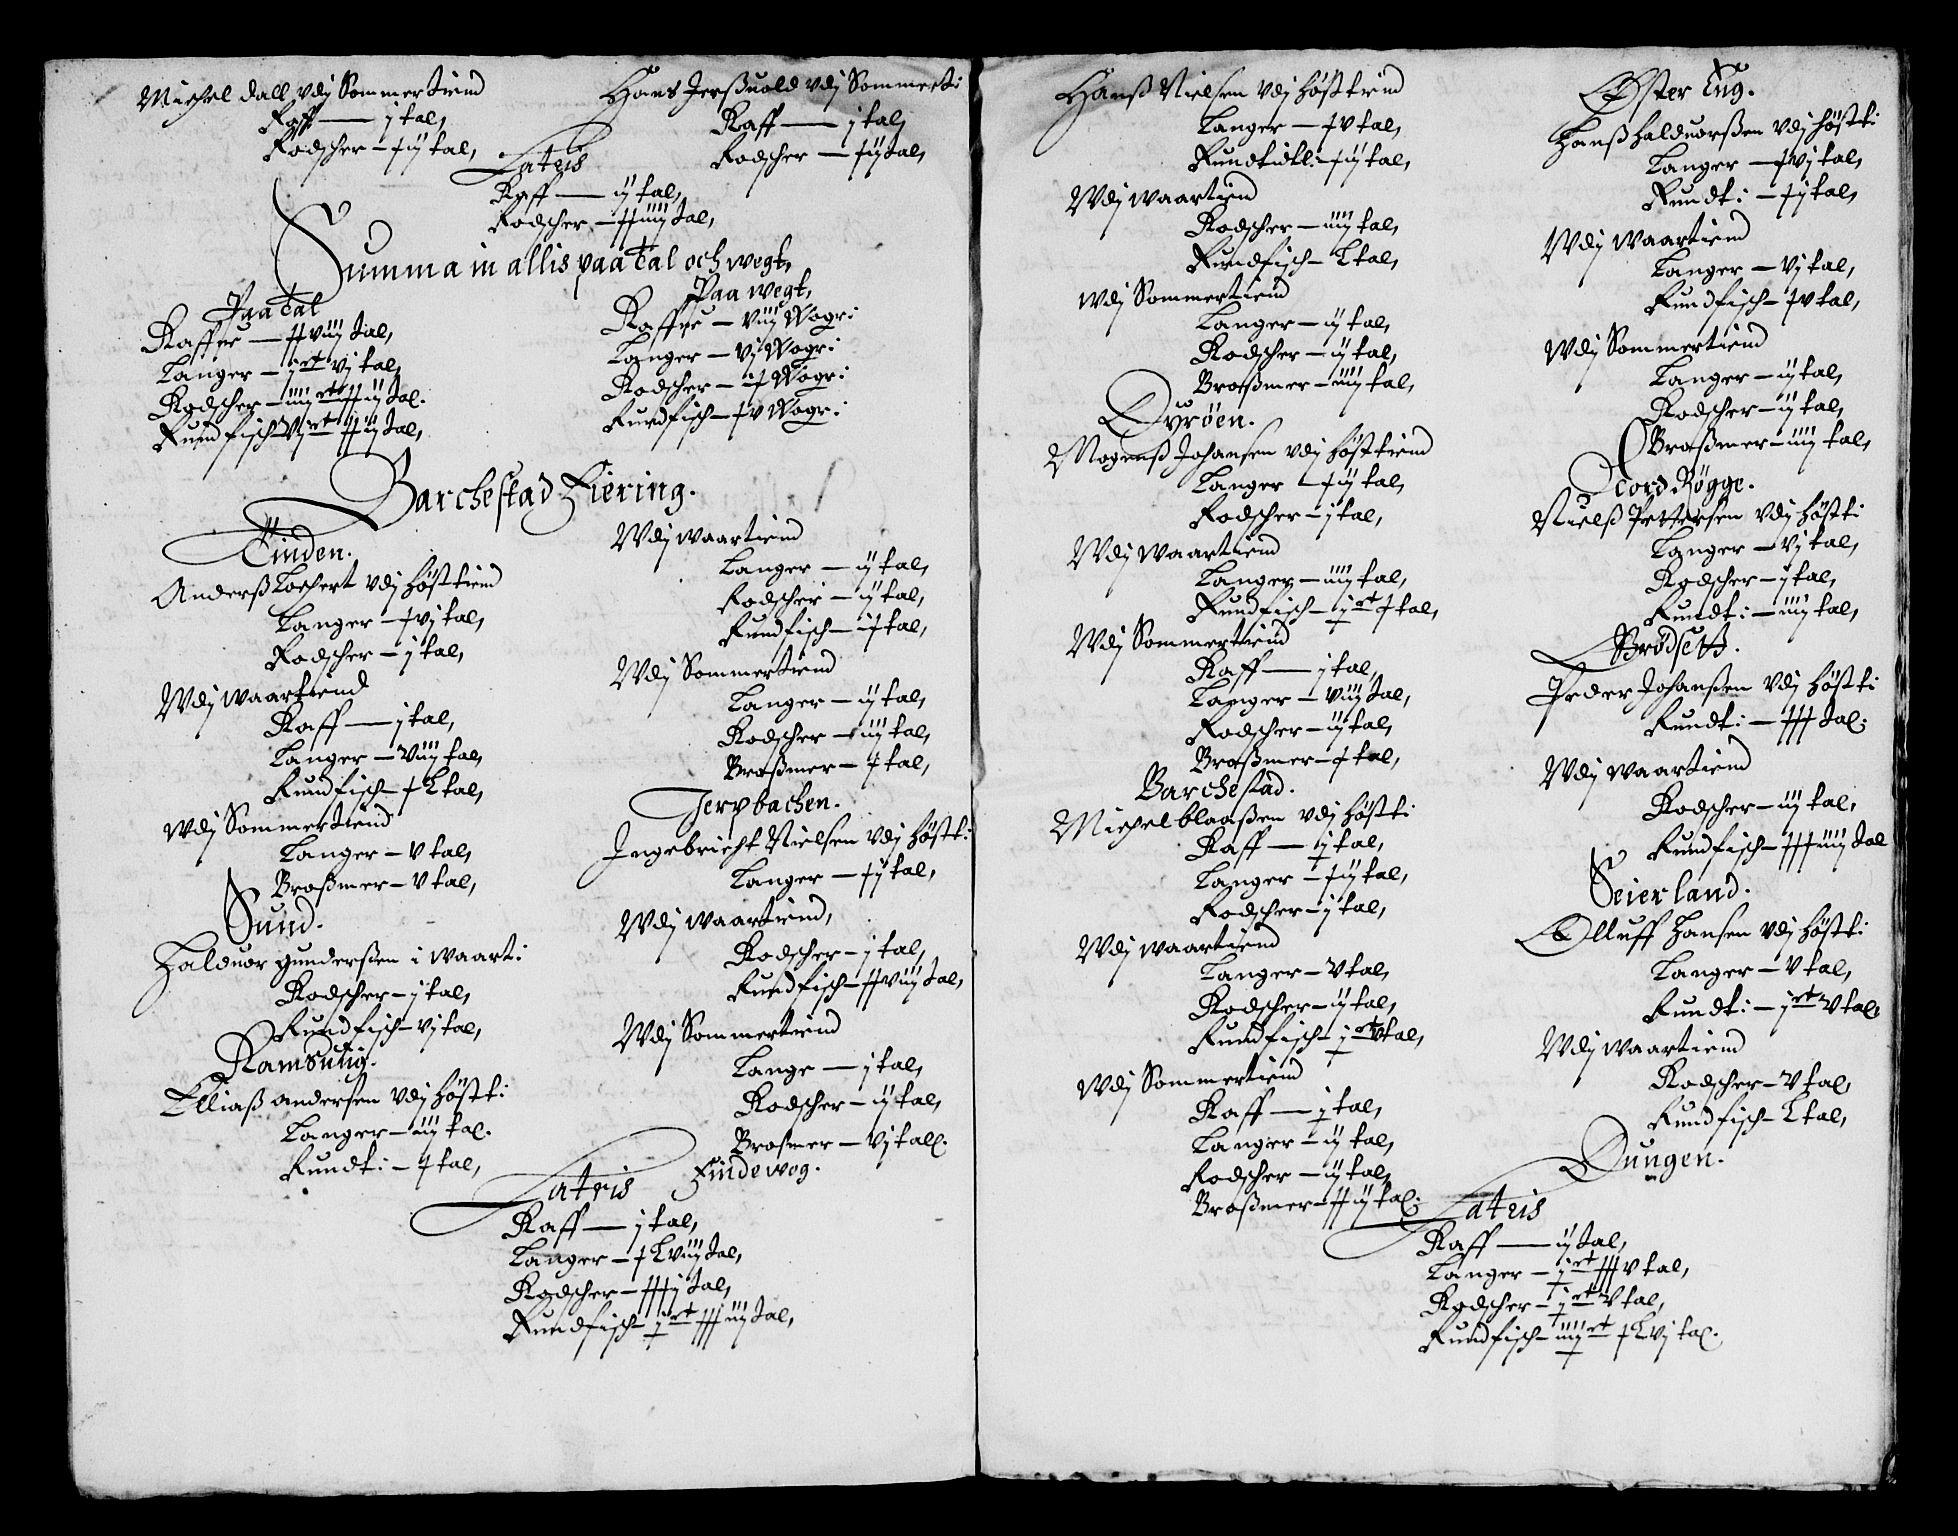 Michel dall vdj Sommertiend
Raff — j tal,
Rodscher — Xij tal,
Hans Jerßuold vdj Sommerti:
Raff — j tal,
Rodscher — Xij tal,
Lateris
Raff — ij tal,
Rodscher — XXiiij tal,
Summa in allis paa Tal och wegt,
Paa Tal
Raffue — XXviij tal,
Langer — j rt vj tal,
Rodscher — iiij rt XXij tal.
Rundfisch — vj rt XXij tal,
Paa wegt,
Raffue — viij Wogr:
Langer — vj Wogr:
Rodscher — iX Wogr:
Rundfisch — Xv Wogr:
Barchestad Fiering.
Tinden.
Anderß Lochert vdj Høsttiend
Langer — Xvj tal,
Rodscher — j tal,
Wdj waartiend
Raff — j tal,
Langer — viij tal,
Rundfisch — XL tal,
Wdj Sommertiend
Langer — v tal,
Broßmer — v tal,
Sund.
Halduor gunderßen i waart:
Rodscher — j tal,
Rundfisch — vj tal,
Ramsuig.
Elliaß andersen vdj Høstt:
Langer — iij tal.
Rundt: — X tal,
Wdj waartiend
Langer — ij tal,
Rodscher — ij tal,
Rundfisch — iX tal,
Wdj Sommertiend
Langer — ij tal,
Rodscher — iij tal,
Broßmer — X tal,
Jerpbachen.
Ingebricht Nielsen vdj Høstt:
Langer — Xij tal,
Wdj waartiend,
Rodscher — j tal,
Rundfisch — XXviij tal,
Wdj Sommertiend
Lange — j tal,
Rodscher — ij tal,
Broßmer — vj tall.
Findewog.
Lateris
Raff — j tal,
Langer — XLviij tal,
Rodscher — XXXj tal,
Rundfisch — j rt XXXiij tal,
Hanß Nielsen vdj Høsttiend
Langer — Xv tal,
Rundtidtl: Xij tal,
Wdj waartiend
Rodscher — iiij tal,
Rundfisch — L tal,
Wdj Sommertiend
Langer — ij tal,
Rodscher — ij tal,
Broßmer — iiij tal,
Dyrøen.
Mogenß Johansen vdj Høsttiend
Langer — Xij tal,
Rodscher — j tal,
Wdj waartiend
Langer — iiij tal,
Rundfisch — j rt X tal,
Wdj Sommertiend
Raff — j tal,
Langer — viij tal,
Rodscher — ij tal,
Broßmer — X tal,
Barchestad.
Michel blaaßen vdj Høstt:
Raff — j tal,
Langer — Xij tal,
Rodscher — j tal,
Wdj waartiend
Langer — v tal,
Rodscher — ij tal,
Rundfisch — j rt v tal,
Wdj Sommertiend
Raff — j tal,
Langer — ij tal,
Rodscher — ij tal,
Broßmer — XXij tal.
Øster Eng.
Hanß halduorßen vdj Høstt:
Langer — Xvj tal,
Rundt: — Xj tal,
Wdj waartiend
Langer — vj tal,
Rundfisch — Xv tal,
Wdj Sommertiend
Langer — ij tal,
Rodscher — ij tal,
Broßmer — iiij tal,
Nord Røgge.
Nielß Pettersen vdj Høstt:
Langer — vj tal,
Rodscher — j tal,
Rundt: — iiij tal,
Brødsett.
Peder Johanßen vdj Høstt:
Rundt: — XXX tal.
Wdj waartiend
Rodscher — iij tal,
Rundfisch — XXXiiij tal
Seierland.
Olluff Hansen vdj Høstt:
Langer — v tal,
Rundt: — j rt v tal,
Wdj waartiend
Rodscher — v tal,
Rundfisch — L tal,
Dungen.
Lateris
Raff — ij tal,
Langer — j rt XXXv tal,
Rodscher — j rt v tal,
Rundfisch — iiij rt XLvj tal.